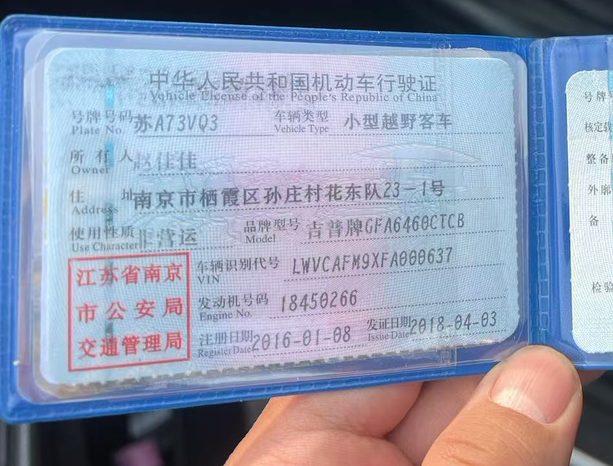 中华人民共和国机动车行驶证
Vehicle License of the People's Republic of China
号牌号码 苏A73VQ3 车辆类型 小型越野客车
Plate No. Vehicle Type
所有人 佳佳
Owner
住址 南京市栖霞区孙庄村花东队23-1号
Address
使用性质 非营运 品牌型号 吉普牌GFA6460CTCB
Use Character Model
江苏省南京
市公安局
交通管理局
车辆识别代号 LWVCAFM9XFA000637
VIN
发动机号码 18450266
Engine No.
注册日期 2016-01-08 发证日期 2018-04-03
Register Date Issue Date
号牌号
核定载
整备
外廓
备
检验